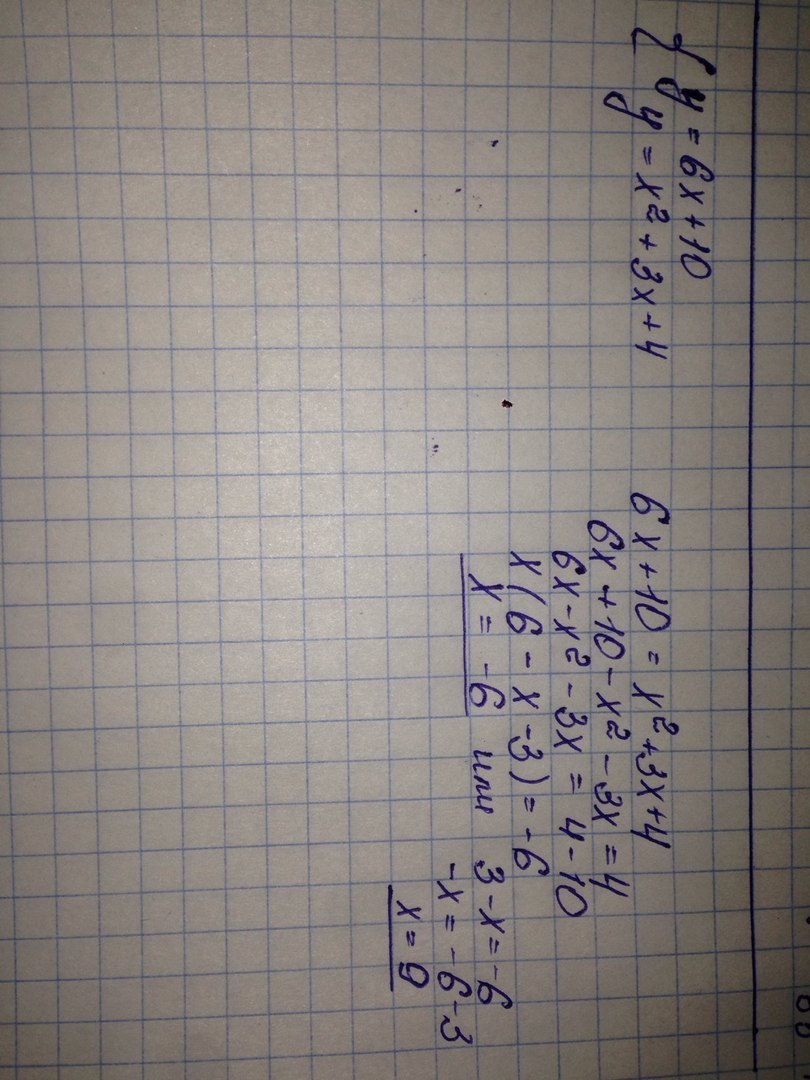 y = 6x + 10
y = x² + 3x + 4
6x + 10 = x² + 3x + 4
6x + 10 - x² - 3x = 4
6x - x² - 3x = 4 - 10
x(6 - x - 3) = -6
x = -6 или 3 - x = -6
-x = -6 - 3
x = 9